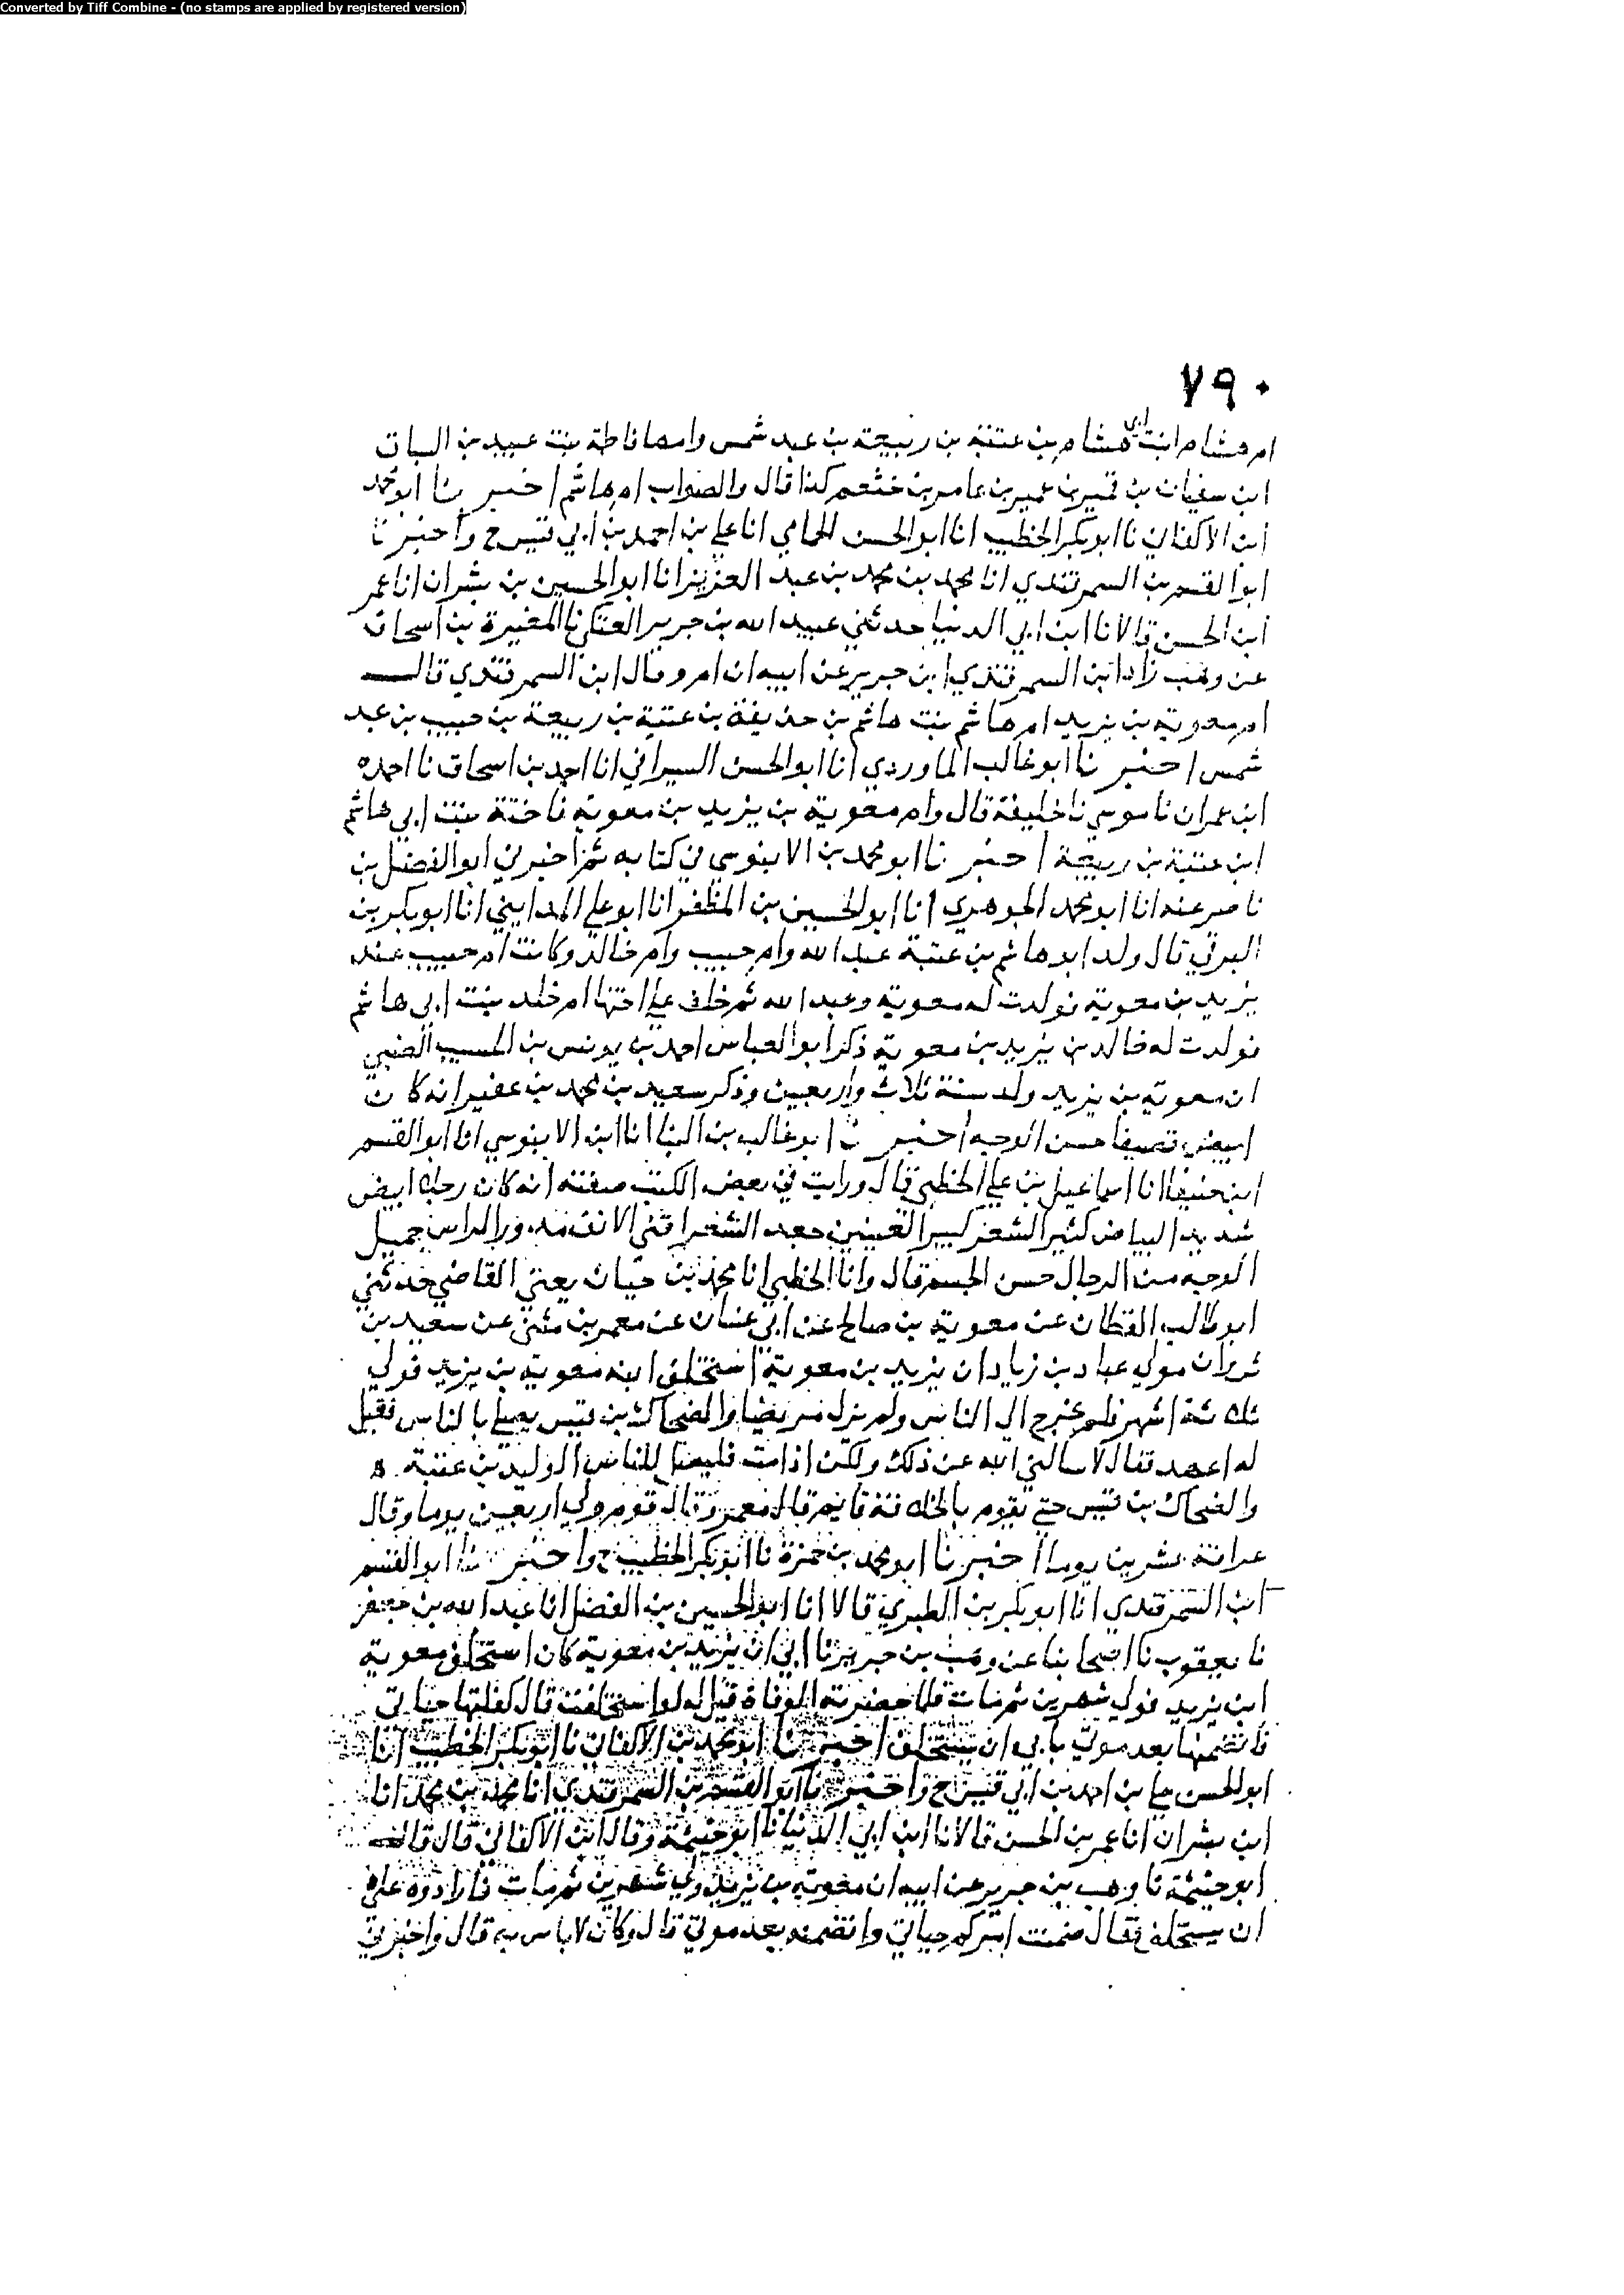 Converted by Tiff Combine - (no stamps are applied by registered version)
٧٩٠
ام هشام ابنت ابي هشام بن عتبة بن ربيعة بن عبد شمس وامها فاطمة بنت عبيد بن السباق
ابن سفيان بن قمير بن عمير بن عامر بن خثعم كذا قال والصواب ام هاشم اخبرنا ابو محمد
ابن الاكفاني نا ابو بكر الخطيب انا ابو الحسن الحمامي انا علي بن احمد بن ابي قيس ح واخبرنا
ابو القسم بن السمرقندي انا محمد بن محمد بن عبد العزيز انا ابو الحسين بن بشران انا عمر
ابن الحسن قالا نا ابن ابي الدنيا حدثني عبيد الله بن جرير العتكي نا المغيرة بن اسحاق
عن وهب زاد ابن السمرقندي ابن جرير عن ابيه ان ام وقال ابن السمرقندي قال
ام معوية بن يزيد ام هاشم بنت هاشم بن حذيفة بن عتبة بن ربيعة بن حبيب بن عبد
شمس اخبرنا ابو غالب الماوردي انا ابو الحسن السيرافي انا احمد بن اسحاق نا احمد
ابن عمران نا موسي نا خليفة قال وام معوية بن يزيد بن معوية فاختة بنت ابي هاشم
ابن عتبة بن ربيعة اخبرنا ابو محمد بن الابنوسي في كتابه ثم اخبرني ابو الفضل بن
ناصر عنه انا ابو محمد الجوهري انا ابو الحسين بن المظفر انا ابو علي المدايني انا ابو بكر بن
البرقي قال ولد ابو هاشم بن عتبة عبد الله وام حبيب وام خالد وكانت ام حبيب عند
يزيد بن معوية فولدت له معوية وعبد الله ثم خلف علي اختها ام خلد بنت ابي هاشم
فولدت له خالد بن يزيد بن معوية ذكر ابو العباس احمد بن يونس بن المسيب الضبي
ان معوية بن يزيد ولد سنة ثلاث واربعين وذكر سعيد بن محمد بن عفير انه كان
ابيض قضيفا حسن الوجه اخبرنا ابو غالب بن البنا انا ابن الابنوسي انا ابو القسم
ابن حنيفا انا اسماعيل بن علي الخطبي قال ورايت في بعض الكتب صفته انه كان رجلا ابيض
شديد البياض كثير الشعر كبير العينين جعد الشعر اقني الانف مدور الراس جميل
الوجه من الرجال حسن الجسم قال وانا الخطبي انا محمد بن حيان يعني القاضي حدثني
ابو طالب القطان عن معوية بن صالح عن ابي غسان عن معمر بن مثني عن سعيد بن
مولي عباد بن زياد ان يزيد بن معوية استخلف ابنه معوية بن يزيد فولي
ثلاثة اشهر فلم يخرج الي الناس ولم يزل مريضا والضحاك بن قيس يصلي بالناس فقيل
له اعهد فقال لا سالني الله عن ذلك ولكن اذا مت فليصل للناس الوليد بن عتبة
والضحاك بن قيس حتي يقوم بالخلافة قايم قال معمر وقال قوم ولي اربعين يوما وقال
عوانة عشرين يوما اخبرنا ابو محمد بن حمزة نا ابو بكر الخطيب ح واخبرنا ابو القسم
ابن السمرقندي انا ابو بكر بن الطبري قالا انا ابو الحسين بن الفضل انا عبد الله بن جعفر
نا يعقوب نا اصحابنا عن وهب بن جرير نا ابي ان يزيد بن معوية كان استخلف معوية
ابن يزيد فولي شهرين ثم مات فلما حضرته الوفاة قيل له لو استخلفت قال كفلتها حياتي
فاتضمنها بعد موتي فابي ان يستخلف اخبرنا ابو محمد بن الاكفاني نا ابو بكر الخطيب انا
ابو الحسن علي بن احمد بن ابي قيس ح واخبرنا ابو القسم بن السمرقندي انا محمد بن محمد انا
ابن بشران انا عمر بن الحسن قالا نا ابن ابي الدنيا نا ابو خيثمة وقال ابن الاكفاني قال قال
ابو خيثمة نا وهب بن جرير عن ابيه ان معوية بن يزيد ولي شهرين ثم مات فارادوه علي
ان يستخلف فقال ضمنت امركم حياتي واتضمنه بعد موتي قال وكان لا باس به قال واخبرني